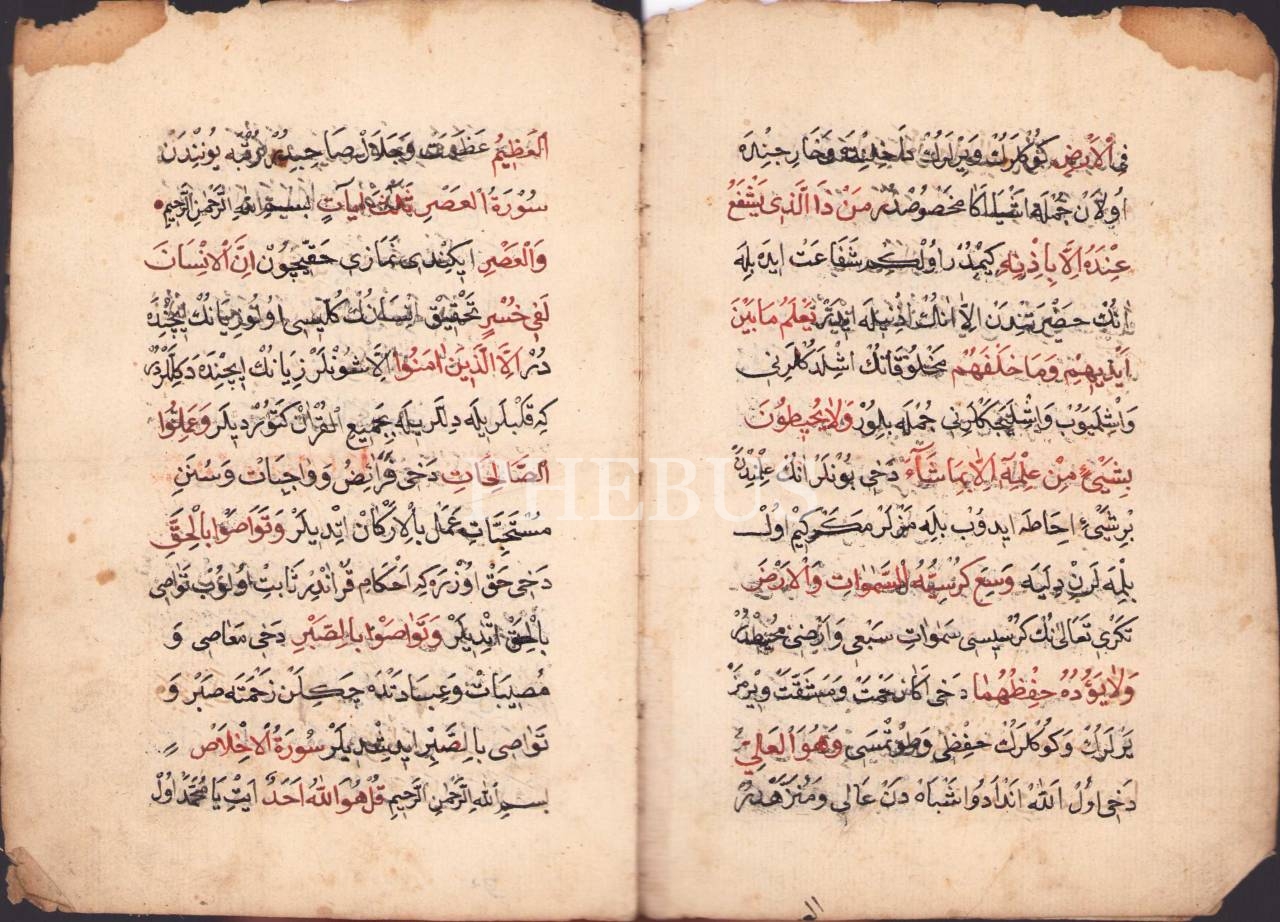 فِي الْاَرْضِ كوُكْلَرِكْ وَيَرْلَرِكْ دَاخِلِنْدَه وَخَارِجِنْدَه
اوُلَانْ جُمْلَه اَشْيَا اكَا مَخْصُوصْدُرْ مَنْ ذَا الَّذِي يَشْفَعُ
عِنْدَهُ اِلَّا بِاِذْنِهِ كِيمْدُرْ اوُلْ كِمْ شَفَاعَتْ ايدَه بِلَه
انُكْ حَضْرَتِنْدَنْ اِلَّا انُكْ اِذْنِيلَه ايدَرْ يَعْلَمُ مَا بَيْنَ
اَيْدِيهِمْ وَمَا خَلْفَهُمْ مَخْلُوقَاتِكْ اِشْلَدُكْلَرِنِي
وَاِشْلَيُوبْ وَاِشْلَيَجَكْلَرِنِي جُمْلَه بِلُورْ وَلَا يُحِيطُونَ
بِشَيْئٍ مِنْ عِلْمِهِ اِلَّا بِمَا شَآءَ دَخِي بُونْلَرْ انُكْ عِلْمِنْدَنْ
بِرْ شَيْئِ اِحَاطَه ايدوُبْ بِلَه مَزْلَرْ مَكَرْ كِيمْ اوُلْ
بِلْمَه لَرِنْ دِلَيَه وَسِعَ كُرْسِيُّهُ السَّمٰوَاتِ وَالْاَرْضَ
تَكْرِي تَعَالٰى نُكْ كُرْسِيسِي سَمٰوَاتِ سَبْعِي وَاَرْضِي مُحِيطْدُرْ
وَلَا يَؤُدُهُ حِفْظُهُمَا دَخِي اكَا زَحْمَتْ وَمَشَقَّتْ وِيرْمَزْ
يَرْلَرِكْ وَكوُكْلَرِكْ حِفْظِي وَطوُتْمَسِي وَهُوَ الْعَلِيُّ
دَخِي اوُلْ اللّٰهْ اَنْدَادْ وَاَشْبَاهْ دَنْ عَالِي وَمُنَزَّهْدُرْ
الْعَظِيمُ عَظَمَتْ وَجَلَالْ صَاحِبِيدُرْ بُونِنْدَنْ
سُورَةُ الْعَصْرِ ثَلٰثُ اٰيَاتٍ بِسْمِ اللّٰهِ الرَّحْمٰنِ الرَّحِيمِ
وَالْعَصْرِ ايكِنْدِي نَمَازِي حَقِّيچُونْ اِنَّ الْاِنْسَانَ
لَفِي خُسْرٍ تَحْقِيقْ اِنْسَانُكْ كُلِّيسِي اوُتوُزِيَانُكْ ايچِنْدَه
دُرْ اِلَّا الَّذِينَ اٰمَنُوا اِلَّا شُونْلَرْ زِيَانُكْ ايچِنْدَه دَكِلْلَرْدُرْ
كِه قَلْبْلَرِيلَه دِلْلَرِيلَه بِجَمِيعِ الْقُرْاٰنْ كَتوُرْدِيلَرْ وَعَمِلُوا
الصَّالِحَاتِ دَخِي فَرَائِضْ وَوَاجِبَاتْ وَسُنَنِ
مُسْتَحَبَّاتِ عَمَلْ بِالْاَرْكَانْ اِتْدِيلَرْ وَتَوَاصَوْا بِالْحَقِّ
دَخِي حَقْ اوُزْرَه كِه اَحْكَامِ قُرْاٰنْدِرْ ثَابِتْ اوُلوُبْ تَوَاصِي
بِالْحَقْ اِتْدِيلَرْ وَتَوَاصَوْا بِالصَّبْرِ دَخِي مَعَاصِي وَ
مُصِيبَاتْ وَعِبَادَتْدَه چَكِلَنْ زَحْمَتَه صَبْرْ وَ
تَوَاصِي بِالصَّبْرِ ايتْدِيلَرْ سُورَةُ الْاِخْلَاصْ
بِسْمِ اللّٰهِ الرَّحْمٰنِ الرَّحِيمِ قُلْ هُوَ اللّٰهُ اَحَدٌ اَيِتْ يَا مُحَمَّدْ اوُلْ
PHEBUS